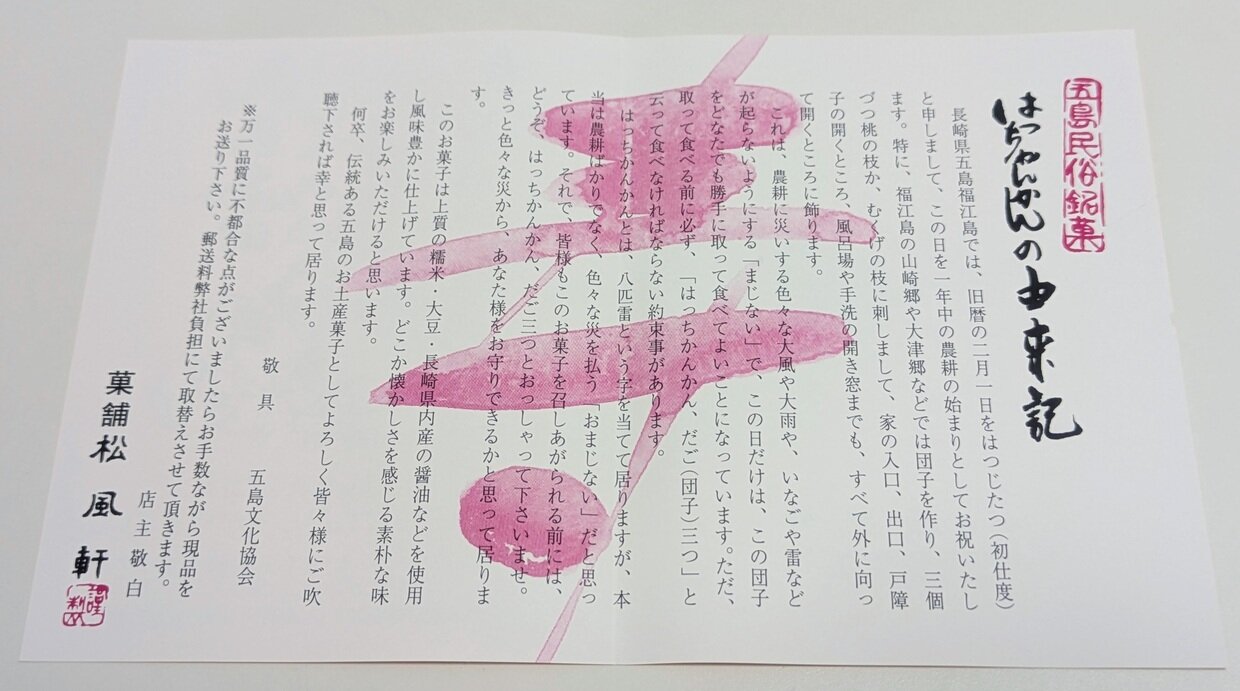 五島民俗銘菓
はっちかんかんの由来記
長崎県五島福江島では、旧暦の二月一日をはつじたつ（初仕度）
と申しまして、この日を一年中の農耕の始まりとしてお祝いいたし
ます。特に、福江島の山崎郷や大津郷などでは団子を作り、三個
づつ桃の枝か、むくげの枝に刺しまして、家の入口、出口、戸障
子の開くところ、風呂場や手洗の開き窓までも、すべて外に向っ
て開くところに飾ります。
これは、農耕に災いする色々な大風や大雨や、いなごや雷など
が起らないようにする「まじない」で、この日だけは、この団子
をどなたでも勝手に取って食べてよいことになっています。ただ、
取って食べる前に必ず、「はっちかんかん、だご（団子）三つ」と
云って食べなければならない約束事があります。
はっちかんかんとは、八匹雷という字を当てて居りますが、本
当は農耕ばかりでなく、色々な災を払う「おまじない」だと思っ
ています。それで、皆様もこのお菓子を召しあがられる前には、
どうぞ、はっちかんかん、だご三つとおっしゃって下さいませ。
きっと色々な災から、あなた様をお守りできるかと思って居りま
す。
このお菓子は上質の糯米・大豆・長崎県内産の醤油などを使用
し風味豊かに仕上げています。どこか懐かしさを感じる素朴な味
をお楽しみいただけると思います。
何卒、伝統ある五島のお土産菓子としてよろしく皆々様にご吹
聴下されば幸と思って居ります。
敬具
五島文化協会
※万一品質に不都合な点がございましたらお手数ながら現品を
お送り下さい。郵送料弊社負担にて取替えさせて頂きます。
店主敬白
菓舗松風軒